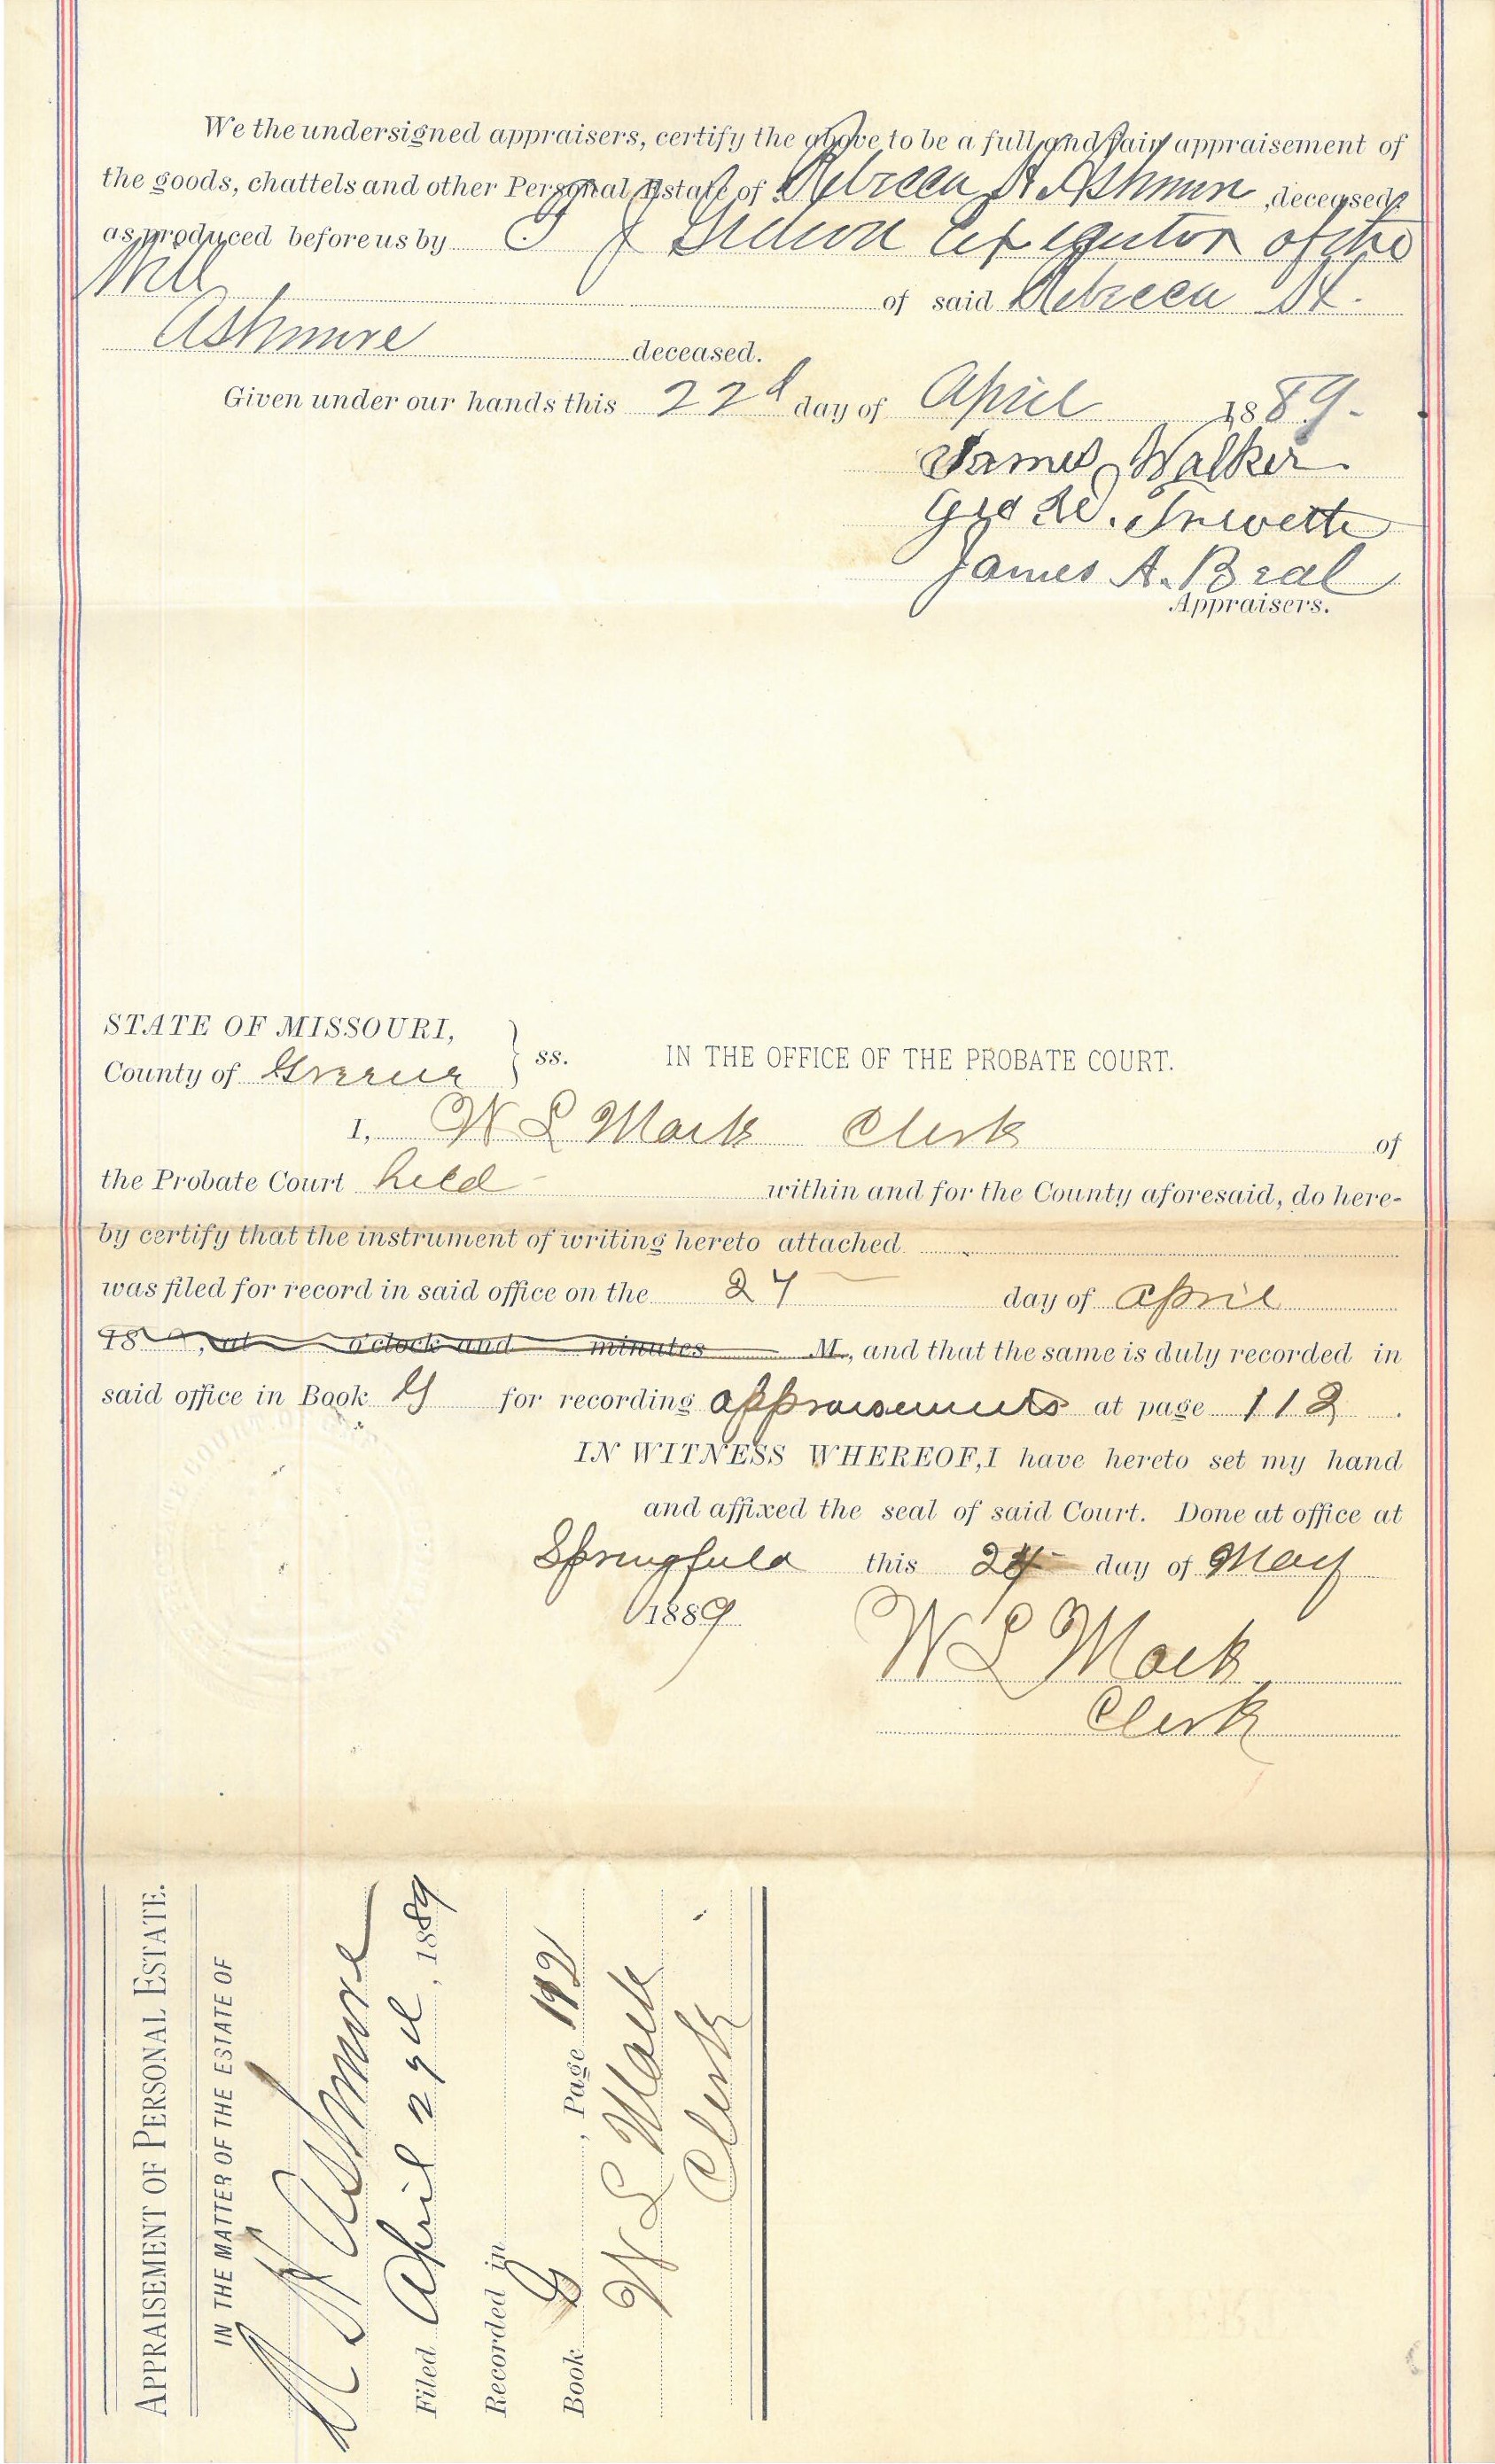 We the undersigned appraisers, certify the above to be a full and fair appraisement of
the goods, chattels and other Personal Estate of Rebecca H Ashmore, deceased,
as produced before us by T J Executor of the
Will of said Rebecca H.
Ashmore deceased.
Given under our hands this 22d day of April 1889.
James Walker
Geo W. Trevett
James A. Beal
Appraisers.
STATE OF MISSOURI,
County of Greene } ss. IN THE OFFICE OF THE PROBATE COURT.
I, W L Mack Clerk of
the Probate Court held within and for the County aforesaid, do here-
by certify that the instrument of writing hereto attached
was filed for record in said office on the 27 day of April
18 , at o'clock and minutes M., and that the same is duly recorded in
said office in Book G for recording appraisements at page 112.
IN WITNESS WHEREOF, I have hereto set my hand
and affixed the seal of said Court. Done at office at
Springfield this 24 day of May
1889
W L Mack
Clerk
APPRAISEMENT OF PERSONAL ESTATE.
IN THE MATTER OF THE ESTATE OF
R H Ashmore
Filed April 27th, 1889
Recorded in
Book G, Page 112
W L Mack
Clerk